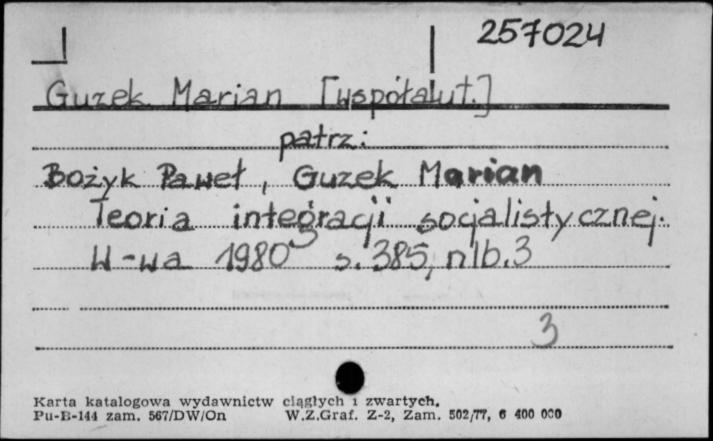 257024
Guzek Marian [współaut.]
patrz:
Bożyk Paweł, Guzek Marian
Teoria integracji socjalistycznej.
W-wa 1980 s. 385, nlb. 3
3
Karta katalogowa wydawnictw ciągłych i zwartych.
Pu-B-144 zam. 567/DW/On W.Z.Graf. Z-2, Zam. 502/77, 6 400 000